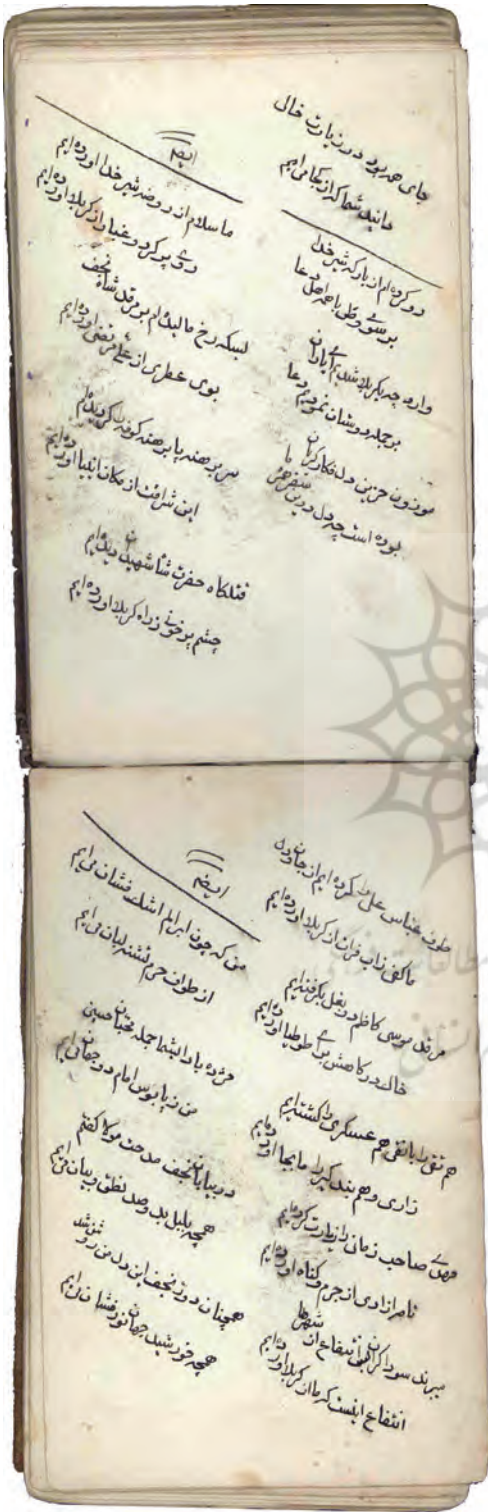 جای همه بود در زیارت خالی
دانید شما که از کجا می ایم
رو کرده ام از بارکه شیر خدا
بر سوی وطن با همه اهل دعا
وارد چه بکربلا شدیم ای یاران
بر جمله دوستان نمودیم دعا
موزون حزین دل فکار کریان
بوده است چه دل درین سفر همره ما
ایضا
ما سلام از روضه شیر خدا اورده ایم
روی پر کرد و غبار از کربلا اورده ایم
بسکه رخ مالیده ام بر مرقد شاه نجف
بوی عطری از علی مرتضی اورده ایم
سر برهنه پا برهنه کوفه را کردیده ایم
این شرافت از مکان انبیا اورده ایم
قتلکاه حضرت شاه شهیدان دیده ایم
چشم پر خونی ز راه کربلا اورده ایم
طوف عباس علی را کرده ایم از جان و دل
ما کفی زاب فرات از کربلا اورده ایم
مرقد موسی کاظم در بغل بکرفته ایم
خاک درکاهش برای طوطیا اورده ایم
هم تقی را با نقی هم عسکری را کشته ایم
زاری و هم بندکی را ما بجا اورده ایم
مهدی صاحب زمان را زیارت کرده ایم
نامر ازادی از جرم و کناه اورده ایم
میبرند سوداکران انتفاع از شهرها
انتفاع اینست که ما از کربلا اورده ایم
ایضا
من که چون ابر الم اشک فشان می ایم
از طواف حرم تشنه لبان می ایم
مژده بادا بشما جمله محبان حسین
من ز پابوس امام دو جهان می ایم
در بیابان نجف مدحت مولا کفتم
همچه بلبل بدو صد نطق و بیان می ایم
همچنان دور نجف این دل من روشن شد
همچه خورشید جهان نور فشان می ایم